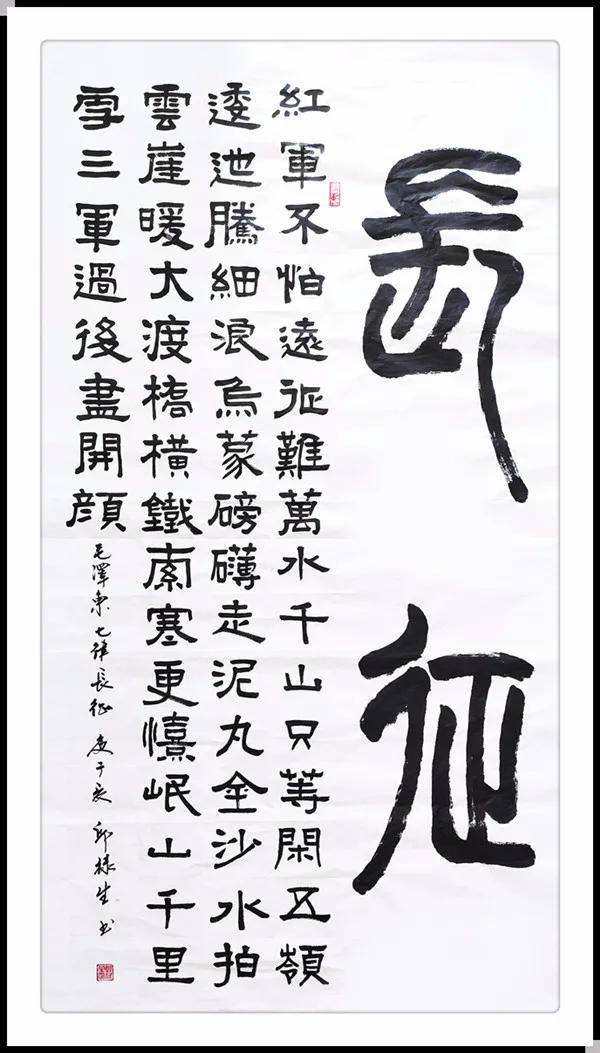 長征
紅軍不怕遠征難萬水千山只等閑五嶺
逶迆騰細浪烏蒙磅礴走泥丸金沙水拍
雲崖暖大渡橋橫鐵索寒更憘岷山千里
雪三軍過後盡開顔
毛澤東七律長征 庚子夏 邱禄生书